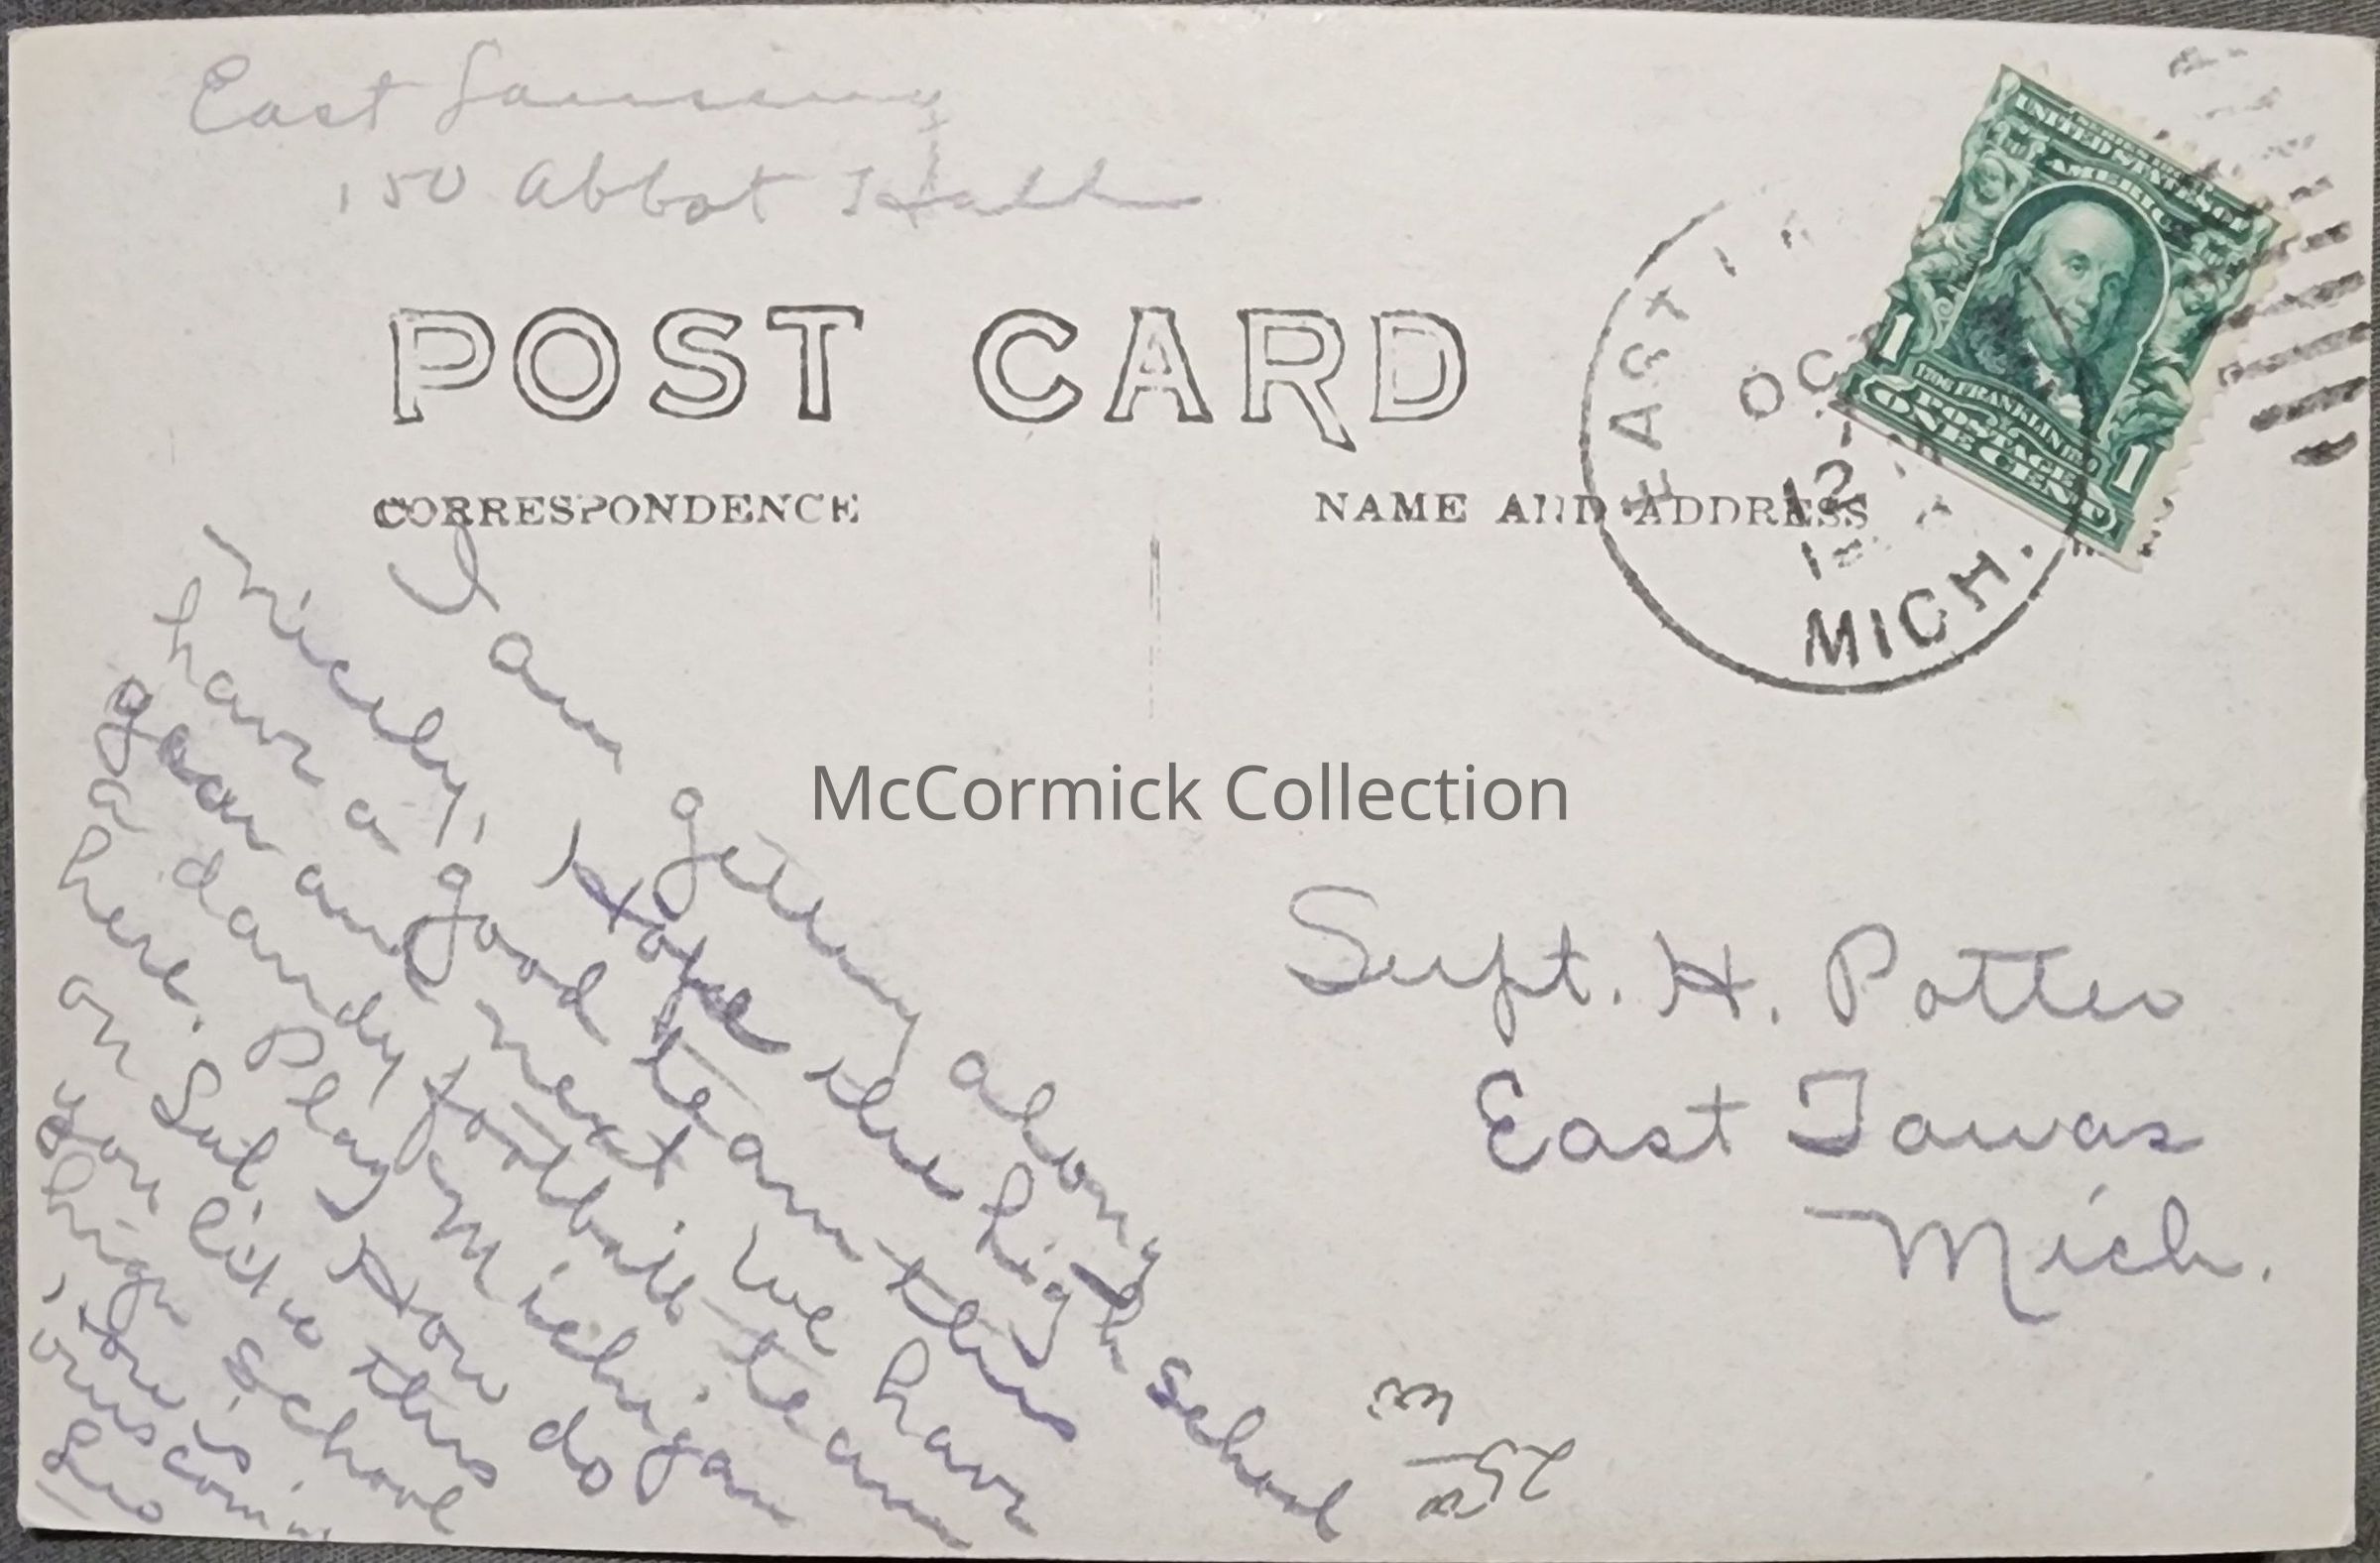 East Lansing
150 Abbot Hall
POST CARD
CORRESPONDENCE
NAME AND ADDRESS
EAST
OCT
12
MICH.
UNITED STATES OF AMERICA
FRANKLIN
POSTAGE
ONE CENT
1 1
I am getting along
nicely, Hope the high school
have a good team this
year and next. We have
a dandy football team
here. Play Michigan
on Sat. How do
you like this
high school
McCormick Collection
Supt. H. Potter
East Tawas
Mich.
2500